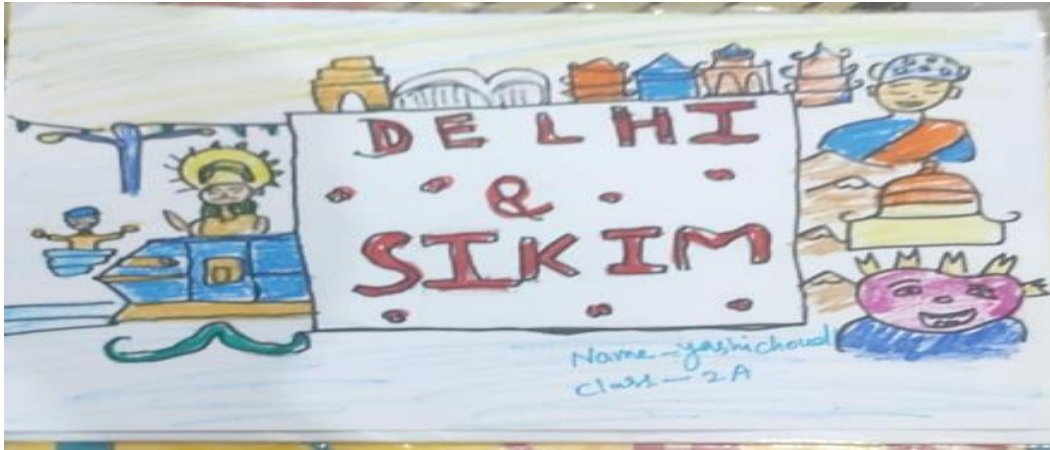 DELHI
&
SIKIM
Name - yashi
Class - 2A